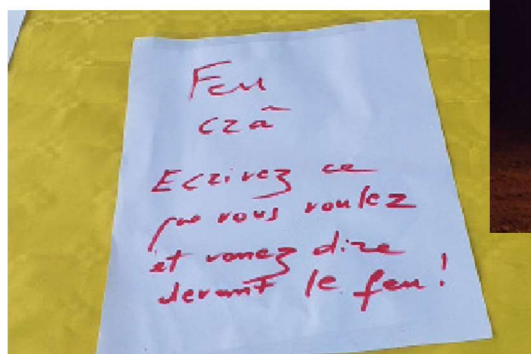 Feu
czâ
Ecrivez ce
que vous voulez
et venez dire
devant le feu !